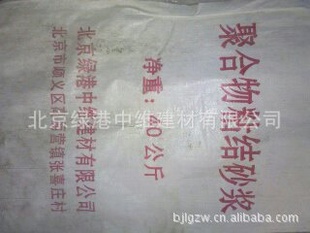 聚合物粘结砂浆
净重：40公斤
北京绿港中维建材有限公司
北京市顺义区高丽营镇张喜庄村
北京绿港中维建材有限公司
bjlgzw.cn.1688.com